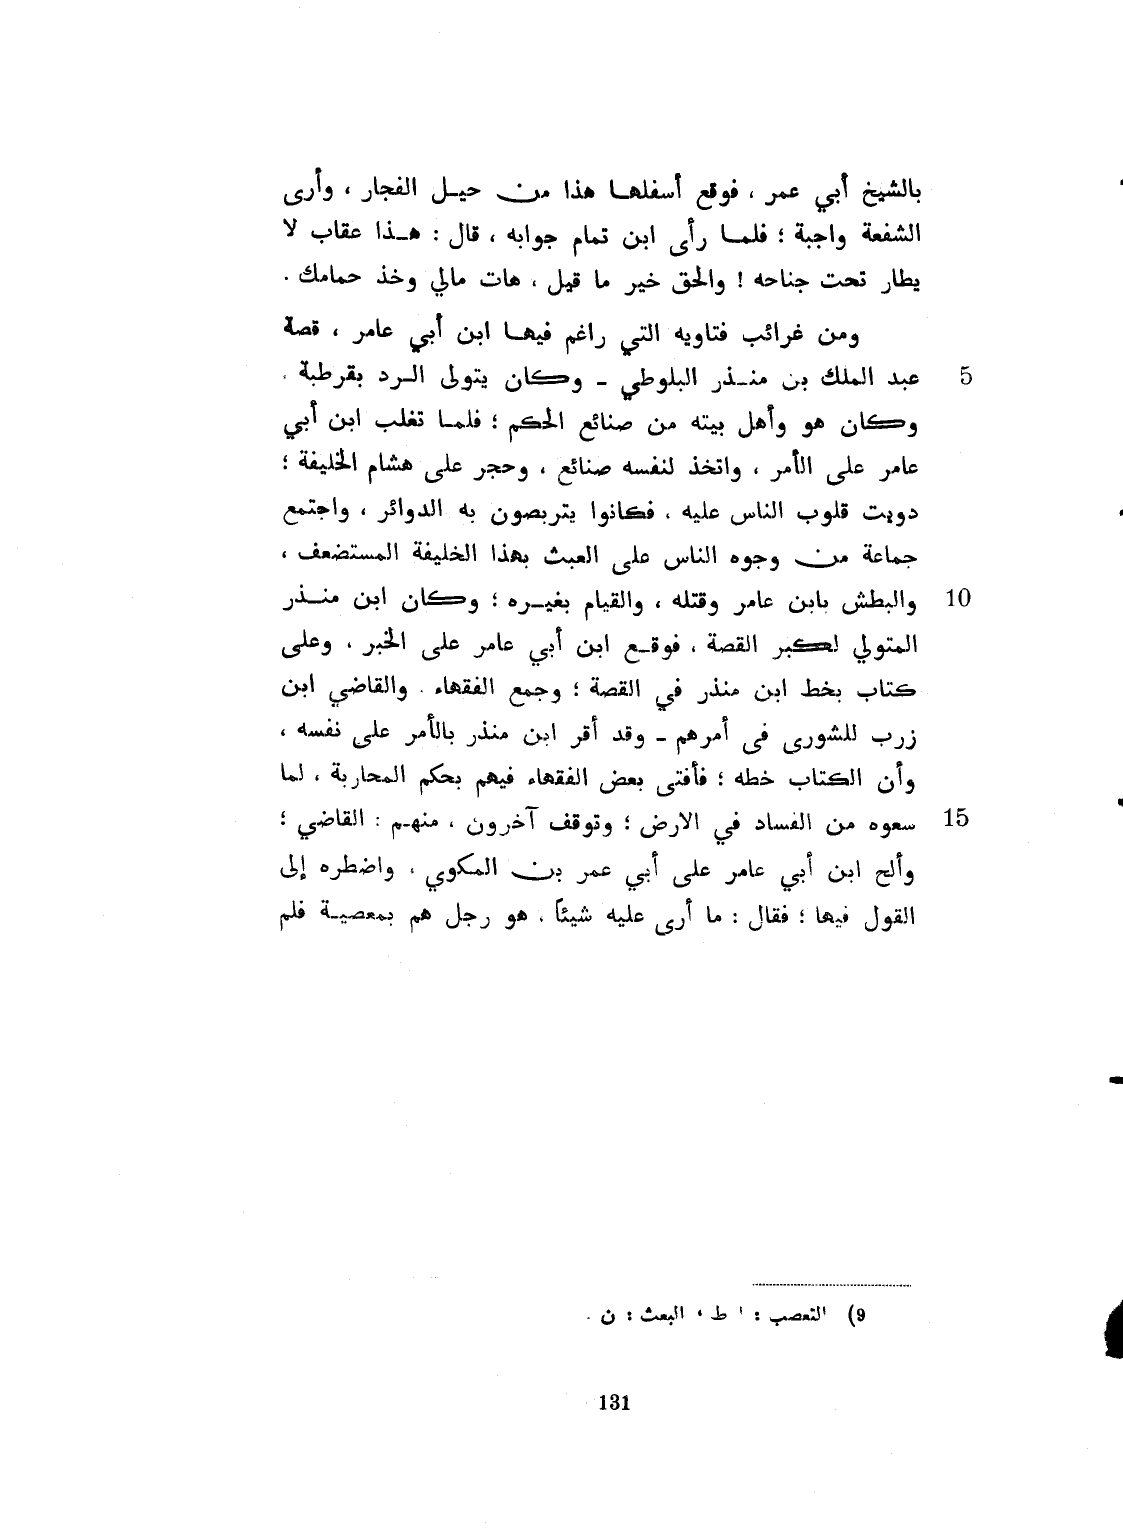 بالشيخ أبي عمر ، فوقع أسفلها هذا من حيل الفجار ، وأرى
الشفعة واجبة ؛ فلما رأى ابن تمام جوابه ، قال : هذا عقاب لا
يطار تحت جناحه ! والحق خير ما قيل ، هات مالي وخذ حمامك .
ومن غرائب فتاويه التي راغم فيها ابن أبي عامر ، قصة
5 عبد الملك بن منذر البلوطي - وكان يتولى الرد بقرطبة .
وكان هو وأهل بيته من صنائع الحكم ؛ فلما تغلب ابن أبي
عامر على الأمر ، واتخذ لنفسه صنائع ، وحجر على هشام الخليفة ؛
دويت قلوب الناس عليه ، فكانوا يتربصون به الدوائر ، واجتمع
جماعة من وجوه الناس على العبث بهذا الخليفة المستضعف ،
10 والبطش بابن عامر وقتله ، والقيام بغيره ؛ وكان ابن منذر
المتولي لكبر القصة ، فوقع ابن أبي عامر على الخبر ، وعلى
كتاب بخط ابن منذر في القصة ؛ وجمع الفقهاء . والقاضي ابن
زرب للشورى في أمرهم - وقد أقر ابن منذر بالأمر على نفسه ،
وأن الكتاب خطه ؛ فأفتى بعض الفقهاء فيهم بحكم المحاربة ، لما
15 سعوه من الفساد في الارض ؛ وتوقف آخرون ، منهم : القاضي ؛
وألح ابن أبي عامر على أبي عمر بن المكوي ، واضطره إلى
القول فيها ؛ فقال : ما أرى عليه شيئاً ، هو رجل هم بمعصية فلم
9) التعصب : ا ط ، البعث : ن .
131